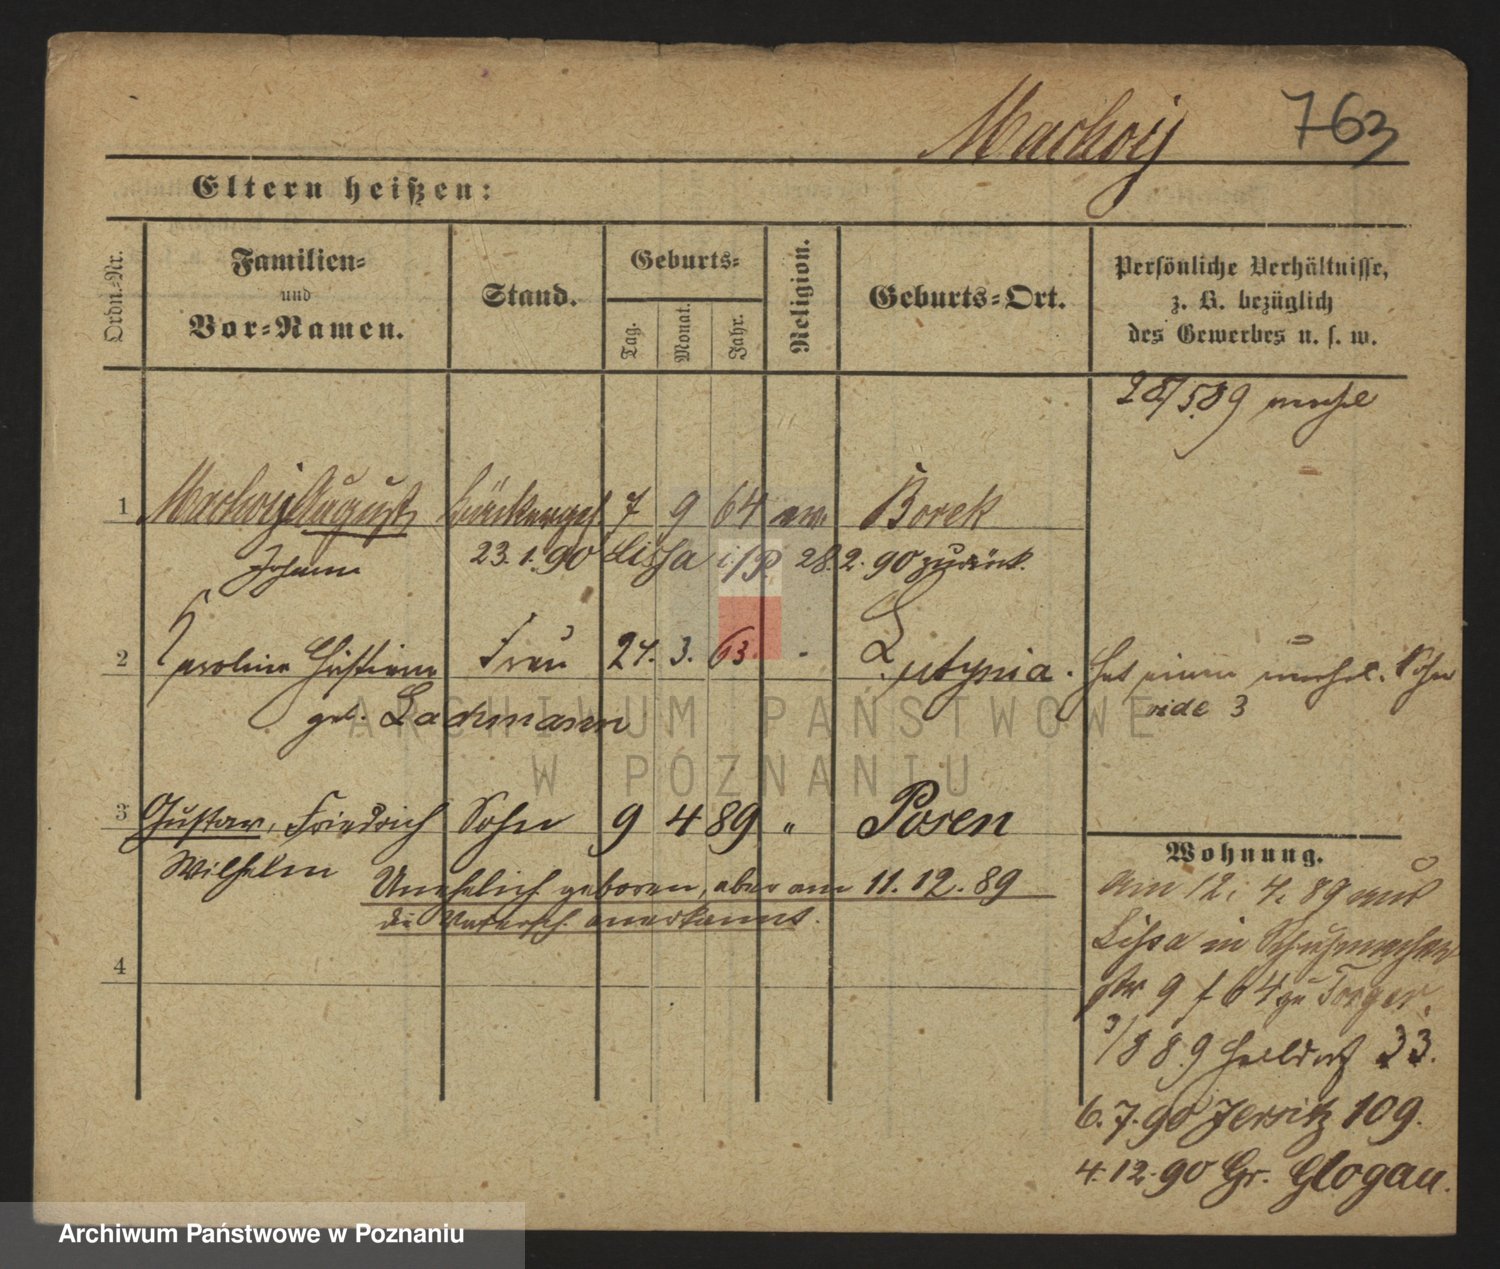 Machoij 763
Eltern heißen:
Ordn.-Nr.
Familien- und Vor-Namen.
Stand.
Geburts-
Tag.
Monat.
Jahr.
Religion.
Geburts-Ort.
Persönliche Verhältnisse, z. B. bezüglich des Gewerbes u. s. w.
28/5.89
1 Machoij August Bäckerges. 7 9 64 ev. Borek
Johann 23.1.90 Lissa i/P. 28.2.90 zurück.
2 Karoline Christiane Frau 24. 3. 63. Lutynia. Hat einen unehel. Sohn
geb. Lachmann vide 3
3 Gustav, Friedrich Sohn 9 4 89 " Posen
Wilhelm
Unehelich geboren, aber am 11.12.89
die Vatersch. anerkannt.
4
Wohnung.
Am 12. 4. 89 aus
Lissa in Schuhmacher
str 9 f 64 zu
3/8 89 Halldorf 33.
6.7.90 Jersitz 109.
4.12.90 Gr. Glogau.
ARCHIWUM PAŃSTWOWE
W POZNANIU
Archiwum Państwowe w Poznaniu